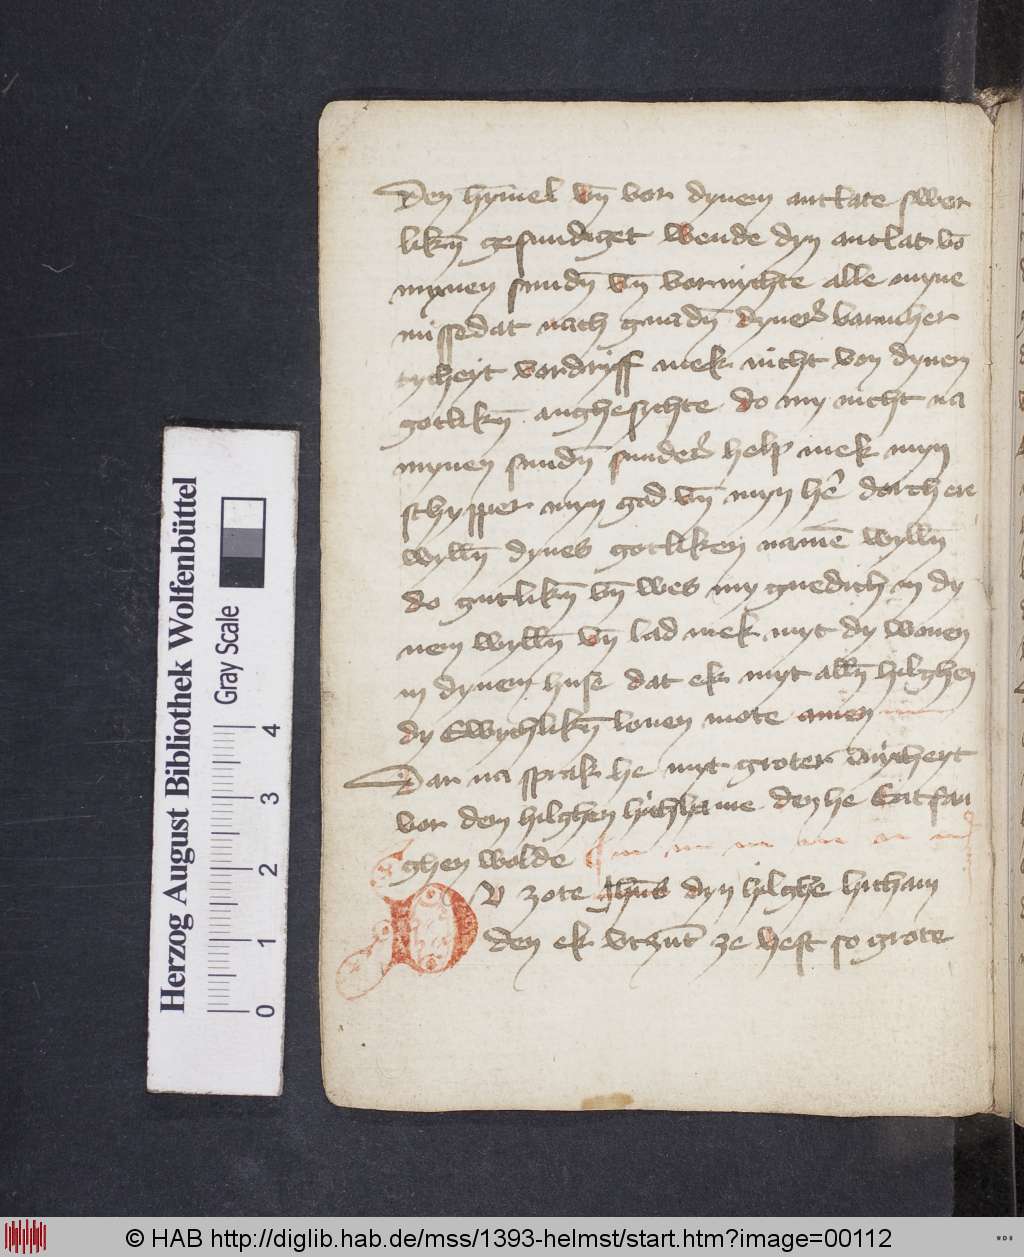 Den hym̄el vn̄ vor dynem antlate swer
likn̄ gesundiget wende dyn antlat vō
mynen sundn̄ vn̄ vornychte alle myne
missedat nach gnadn̄ dyner barmher
tycheyt vordryff mek nicht von dynem
gotlikn̄ anghesychte do my nicht na
mynen sundn̄ sunder help mek myn
schypper myn god vn̄ myn hē dorch ere
wylln̄ dynes gotliken namē wylln̄
do gutlikn̄ vn̄ wes my gnedich in dy
nem wylln̄ vn̄ lad mek myt dy wonen
in dynem huse dat ek myt alln̄ hilghen
dy Ewychlikn̄ louen mote amen
Dar na sprak he myt groter ynicheyt
vor dem hilghen lychame den he Entfan
ghen wolde
DV zote ihūs dyn hilghe licham
den ek vtzūt ze hest so grote
Herzog August Bibliothek Wolfenbüttel
Gray Scale
0 1 2 3 4
© HAB http://diglib.hab.de/mss/1393-helmst/start.htm?image=00112